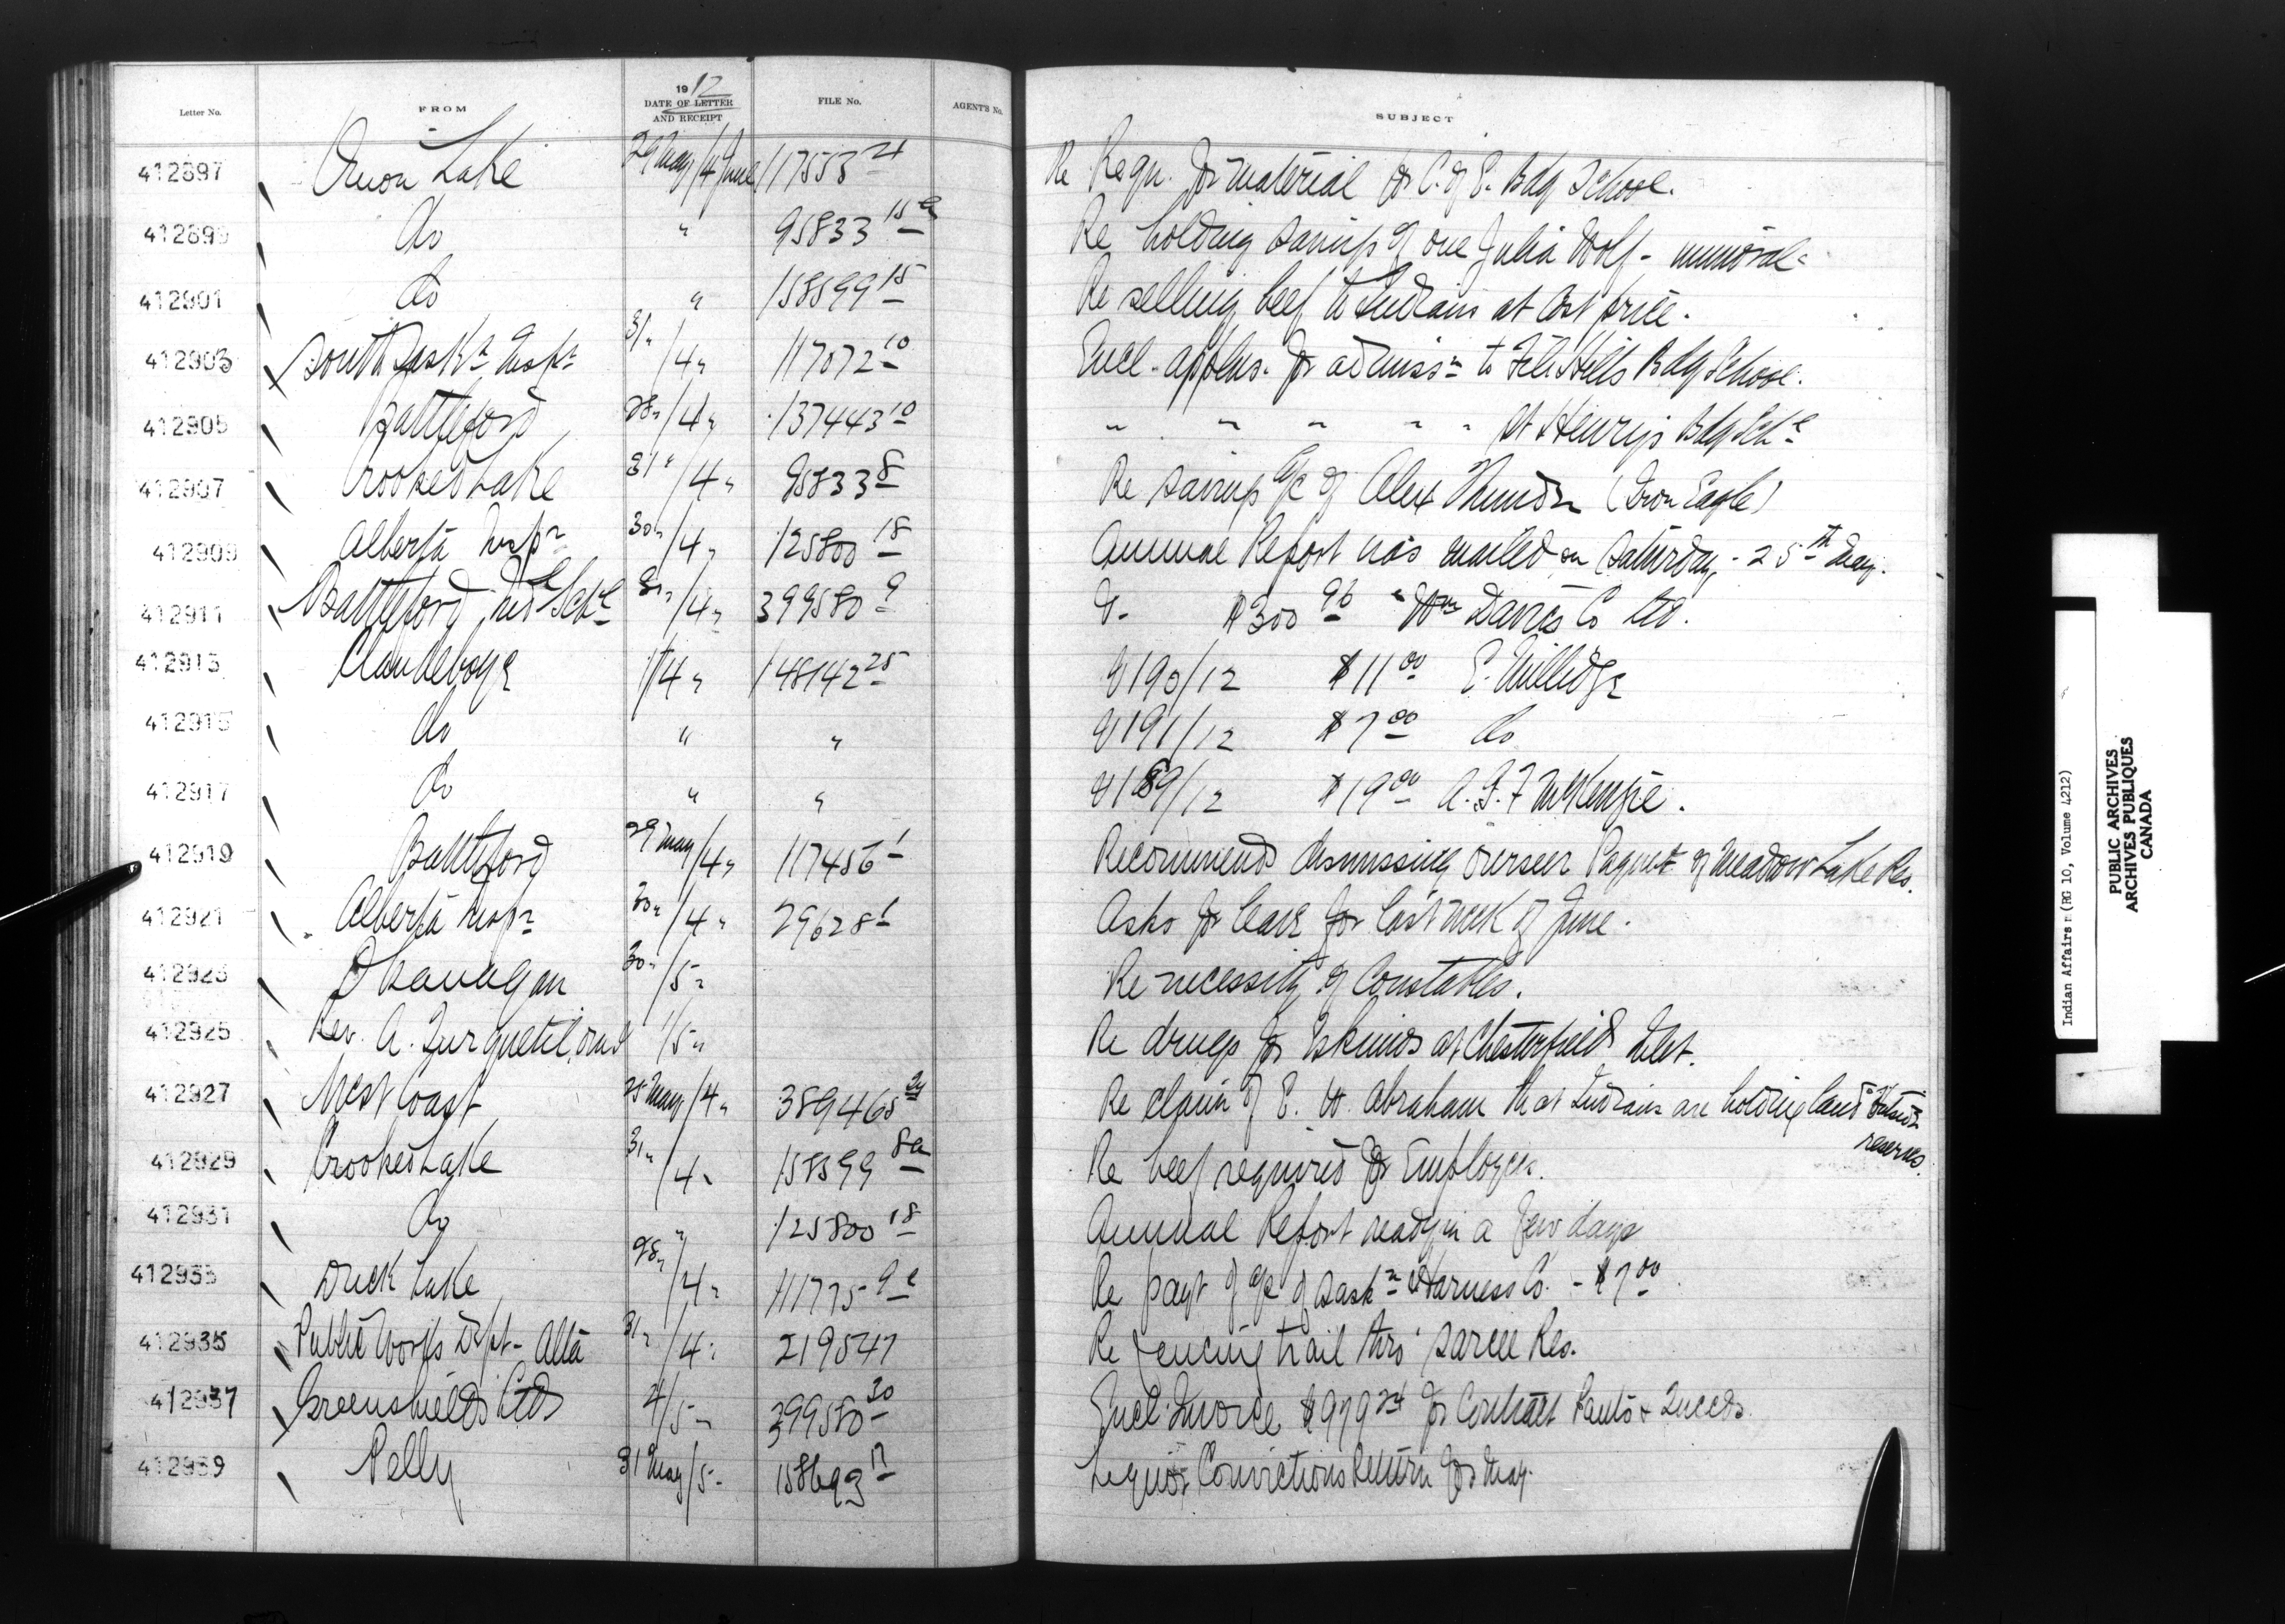 Letter No. FROM 1912 DATE OF LETTER AND RECEIPT FILE No. AGENT'S No. SUBJECT
412897 Onion Lake 29 May/4 June 117553 21 Re Reqn. for material for C. of E. Bdg School.
412899 do " 95833 15a Re holding savings of one Julia Wolf - immoral.
412901 do " 158599 15 Re selling beef to Indians at cost price.
412903 South Saskn Inspr 31 " /4 " 117072 10 Encl. applns. for admissn to File Hills Bdg School.
412905 Battleford 28 " /4 " 137443 10 " " " " " St Henry's Bdg Schl
412907 Crooked Lake 31 " /4 " 95833 8 Re savings a/c of Alex Thunder (Iron Eagle)
412909 Alberta Inspr 30 " /4 " 125800 18 Annual Report was mailed on Saturday, - 25th May.
412911 Battleford Indl Schl 31 " /4 " 399580 9 V. $300 96 " Wm Davies Co Ltd.
412913 Clandeboye 1/4 " 148142 25 V 190/12 $11 00 E. Millidge
412915 do " " V 191/12 $7 00 do
412917 do " " V 189/12 $19 00 A. G. F McKenzie.
412919 Battleford 29 May/4 " 117456 1 Recommends dismissing overseer Paquet of Meadow Lake Res.
412921 Alberta Inspr 30 " /4 " 29628 1 Asks for leave for last week of June.
412923 Okanagan 30 " /5 " Re necessity of Constables.
412925 Rev. A. Turquetil, omi 1/5 " Re drugs for Eskimos at Chesterfield Inlet.
412927 West Coast 25 May/4 " 389465 Re claim of E. W. Abraham that Indians are holding land outside
reserves.
412929 Crooked Lake 31 " /4 " 158599 8a Re beef required for Employees.
412931 do " 125800 18 Annual Report ready in a few days
412933 Duck Lake 28 " /4 " 111775 Re payt of a/c of Saskn Harness Co. - $7 00
412935 Public Works Dept - Alta 31 " /4 " 219547 Re fencing trail thro' Sarcee Res.
412937 Greenshields Ltd 4/5 " 399580 30 Encl. Invoice $979 24 for Contract Pants & Tweeds
412939 Pelly 31 May/5 " 158693 17 Liquor Convictions Return for May.
Indian Affairs (RG 10, Volume 4212)
PUBLIC ARCHIVES
ARCHIVES PUBLIQUES
CANADA